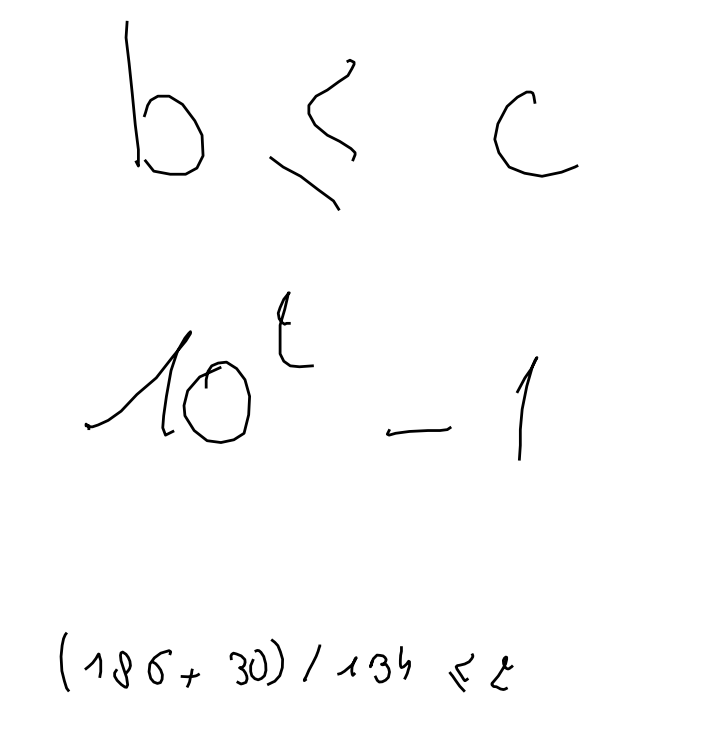 b ≤ c
10^t - 1
(186+30)/134 ≤ 2